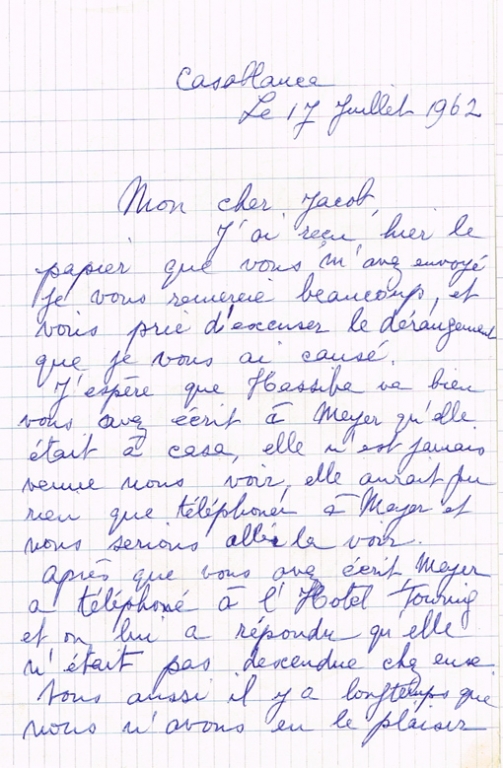 Casablanca
Le 17 Juillet 1962
Mon cher Jacob,
J'ai reçu hier le
papier que vous m'avez envoyé
je vous remercie beaucoup, et
vous prie d'excuser le dérangement
que je vous ai causé.
J'espère que Hassiba va bien
vous avez écrit à Meyer qu'elle
était à casa, elle n'est jamais
venue nous voir, elle aurait pu
rien que téléphoner à Meyer et
nous serions allés la voir.
Après que vous avez écrit Meyer
a téléphoné à l'Hotel Touring
et on lui a répondu qu'elle
n'était pas descendue chez eux.
Vous aussi il y a longtemps que
nous n'avons eu le plaisir